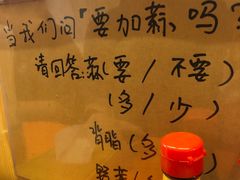 当我们问「要加蒜」吗?
请回答:蒜(要/不要)
(多/少)
背脂(多